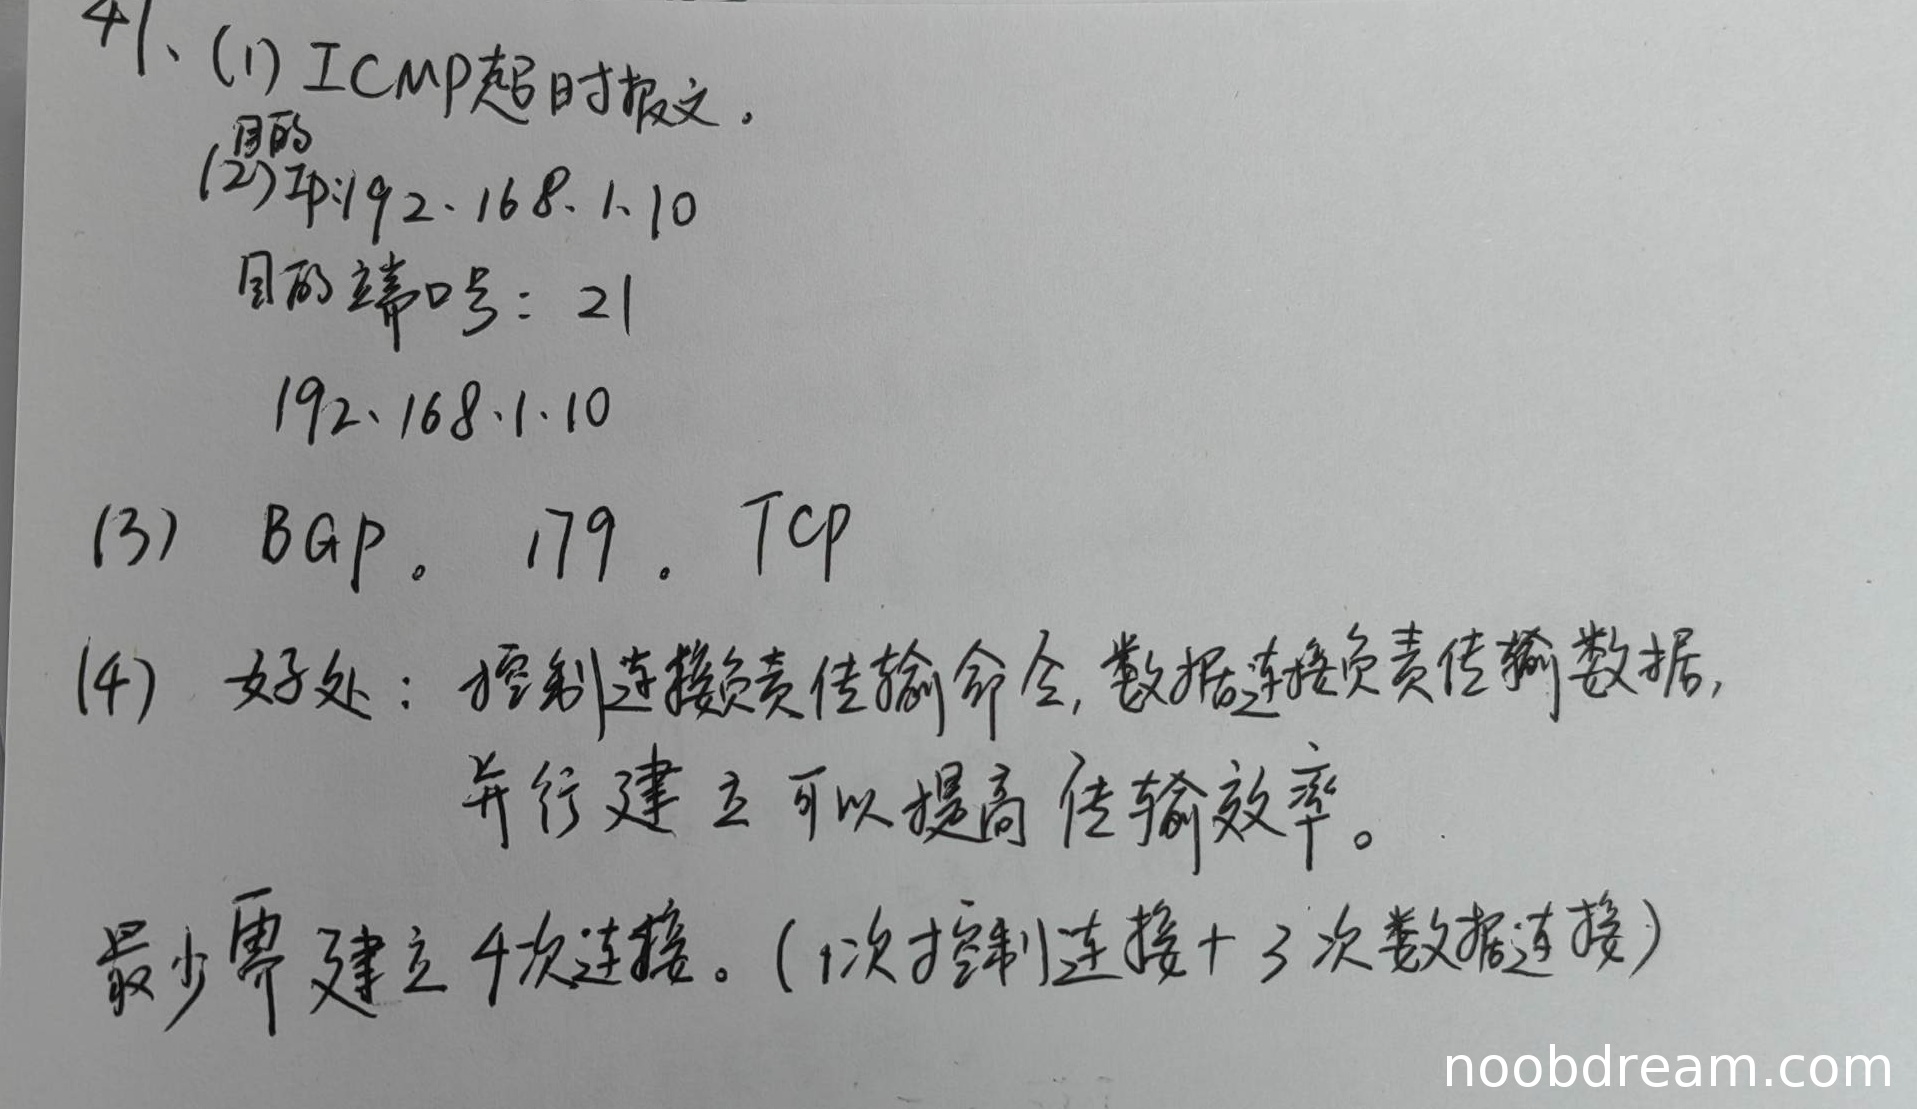 41、(1) ICMP超时报文.
(2) 目的IP:192.168.1.10
目的端口号: 21
192.168.1.10
(3) BGP。 179。 TCP
(4) 好处: 控制连接负责传输命令,数据连接负责传输数据,
并行建立可以提高传输效率。
最少需建立4次连接。(1次控制连接+3次数据连接)
noobdream.com